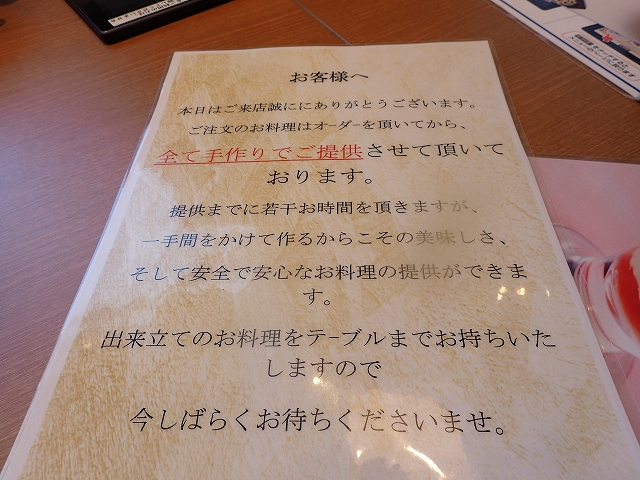 お客様へ
本日はご来店誠ににありがとうございます。
ご注文のお料理はオーダーを頂いてから、
全て手作りでご提供させて頂いて
おります。
提供までに若干お時間を頂きますが、
一手間をかけて作るからこその美味しさ、
そして安全で安心なお料理の提供ができま
す。
出来立てのお料理をテーブルまでお持ちいた
しますので
今しばらくお待ちくださいませ。